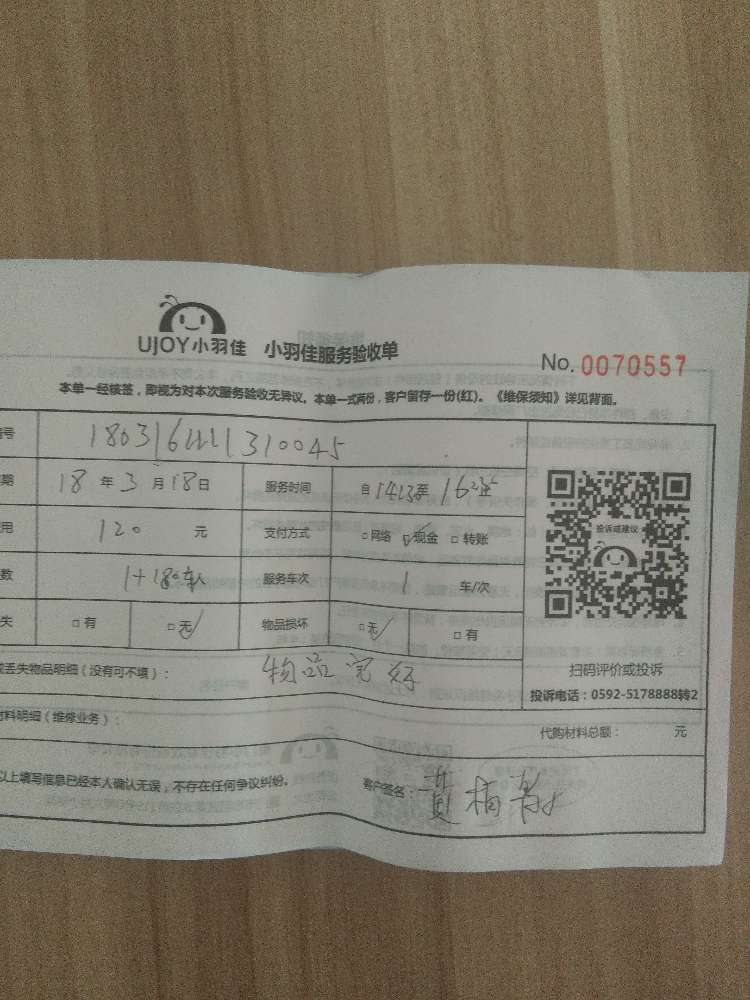 UJOY小羽佳 小羽佳服务验收单 No. 0070557
本单一经核签，即视为对本次服务验收无异议。本单一式两份，客户留存一份(红)。《维保须知》详见背面。
号
期 18 年 3 月 18 日 服务时间 自 1413 至 16
用 120 元 支付方式 □网络 □现金 □转账
数 服务车次 1 车/次
失 □有 □无 物品损坏 □无 □有
丢失物品明细（没有可不填）： 物品完好
扫码评价或投诉
投诉电话：0592-5178888转2
投诉或建议
材料明细（维修业务）： 代购材料总额： 元
以上填写信息已经本人确认无误，不存在任何争议纠纷。 客户签名：